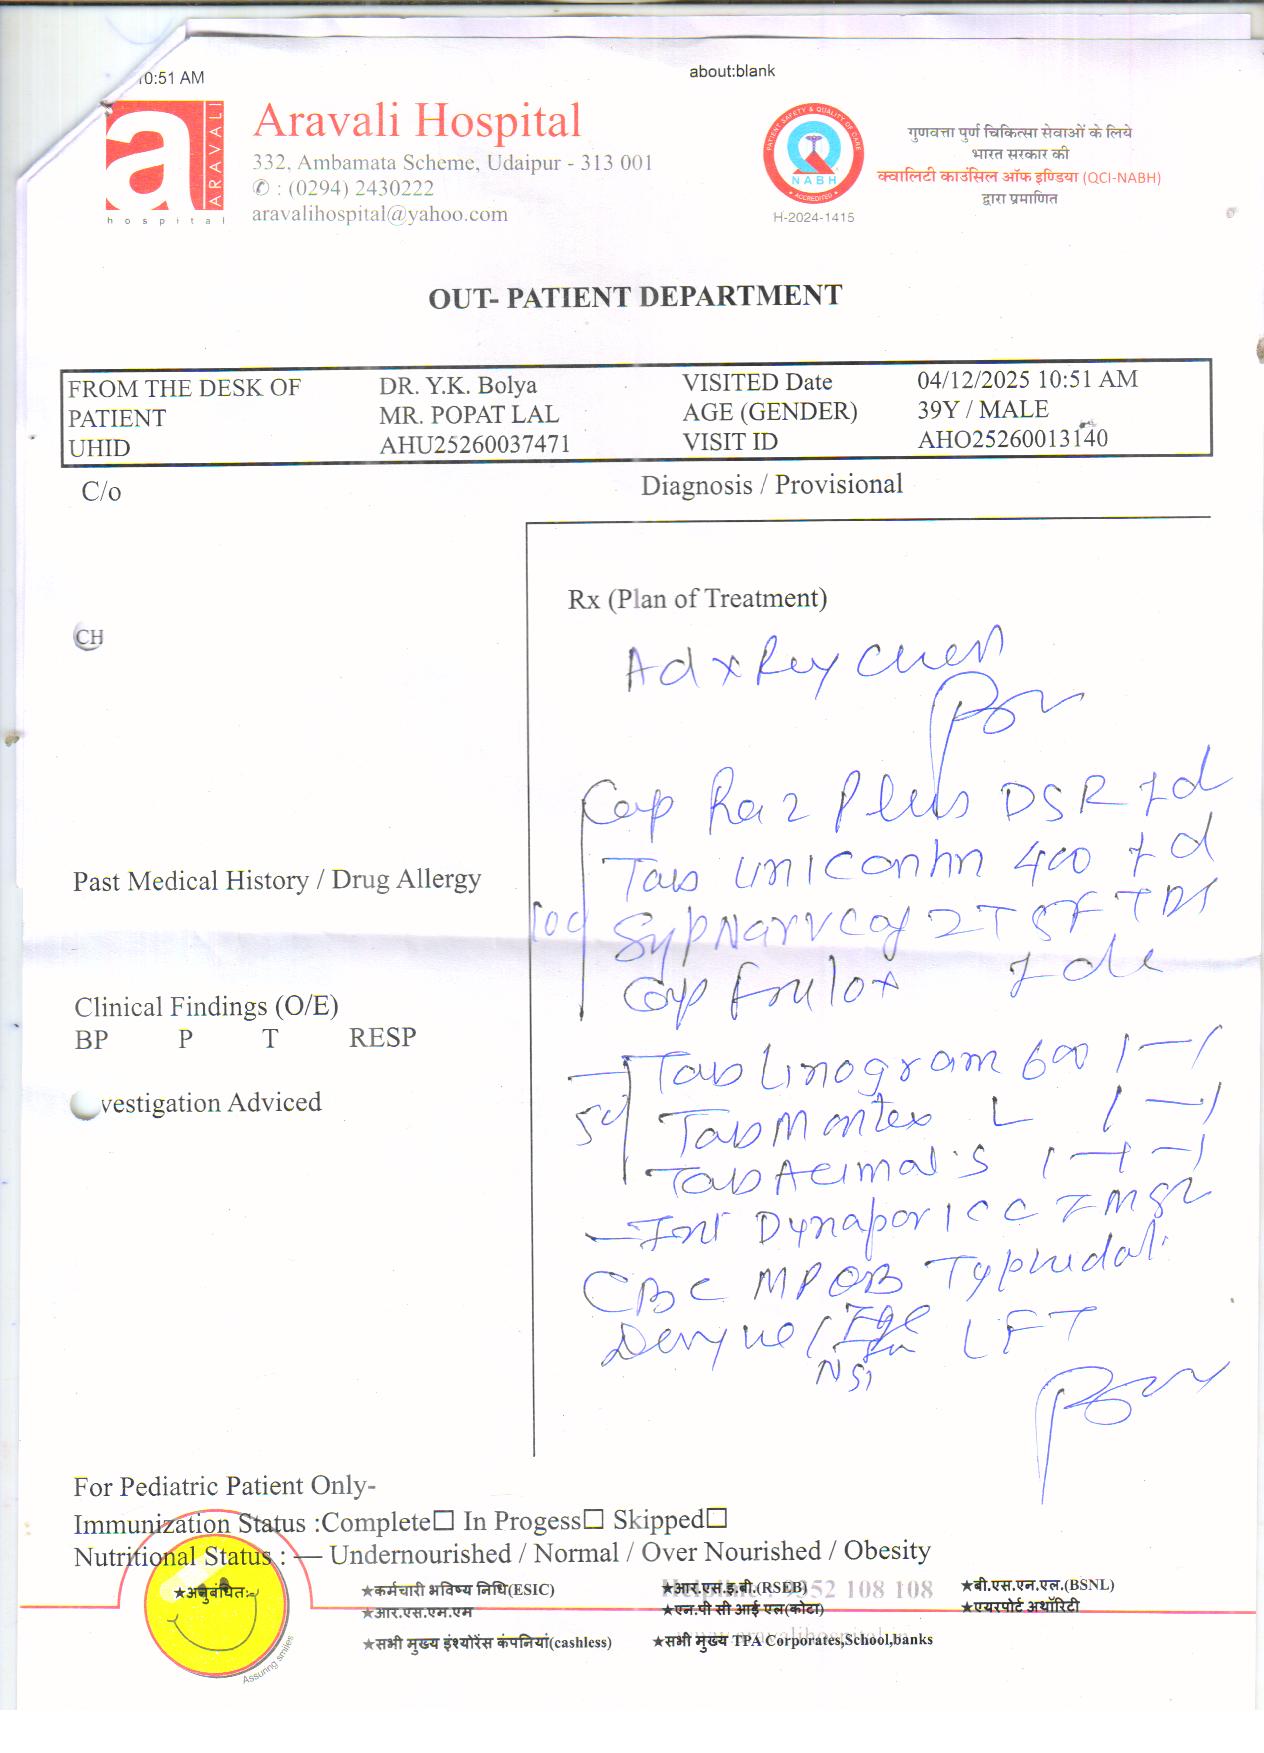 10:51 AM
about:blank
a
ARAVALI
hospital
Aravali Hospital
332, Ambamata Scheme, Udaipur - 313 001
✆ : (0294) 2430222
aravalihospital@yahoo.com
PATIENT SAFETY & QUALITY OF CARE
NABH
ACCREDITED
H-2024-1415
गुणवत्ता पुर्ण चिकित्सा सेवाओं के लिये
भारत सरकार की
क्वालिटी काउंसिल ऑफ इण्डिया (QCI-NABH)
द्वारा प्रमाणित
OUT- PATIENT DEPARTMENT
FROM THE DESK OF DR. Y.K. Bolya VISITED Date 04/12/2025 10:51 AM
PATIENT MR. POPAT LAL AGE (GENDER) 39Y / MALE
UHID AHU25260037471 VISIT ID AHO25260013140
C/o Diagnosis / Provisional
Rx (Plan of Treatment)
CH
Adv Xray Chest
Cap Raz Plus DSR 1d
Tab 400 1d
Past Medical History / Drug Allergy
10d Syp 2TSF TDS
Cap 1d
Clinical Findings (O/E)
BP P T RESP
Tab Linogram 600 1—1
vestigation Adviced
5d Tab Montex L 1—1
Tab Acimal S 1—1—1
Inj Dynapar 1CC
CBC MP Typhidot
Dengue / LFT
NS1
For Pediatric Patient Only-
Immunization Status :Complete☐ In Progess☐ Skipped☐
Nutritional Status : — Undernourished / Normal / Over Nourished / Obesity
★अनुबंधित:- ★कर्मचारी भविष्य निधि(ESIC) ★आर.एस.इ.बी.(RSEB) ★बी.एस.एन.एल.(BSNL)
Helpline : 9352 108 108
★आर.एस.एम.एम ★एन.पी सी आई एल(कोटा) ★एयरपोर्ट अथॉरिटी
★सभी मुख्य इंश्योरेंस कंपनियां(cashless) ★सभी मुख्य TPA Corporates,School,banks
Assuring smiles